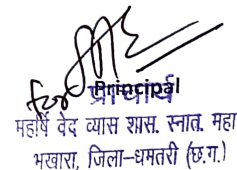 for Principal
प्राचार्य
महर्षि वेद व्यास शास. स्नात. महा
भखारा, जिला-धमतरी (छ.ग.)